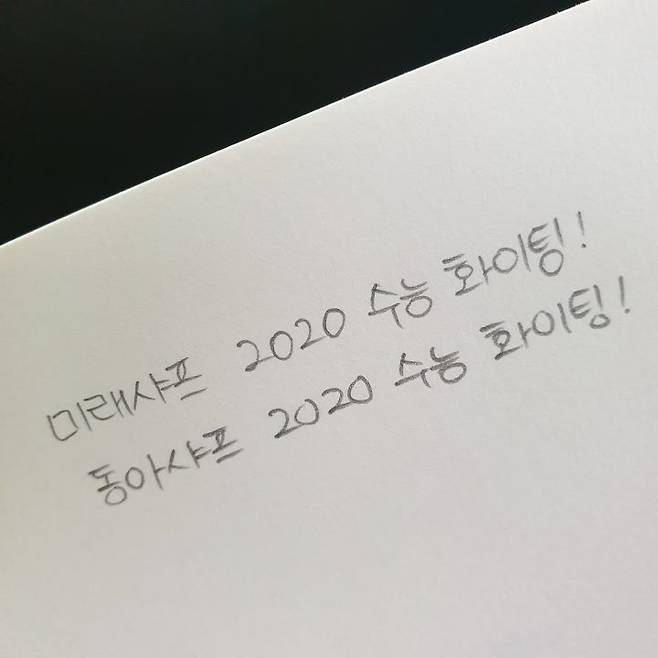 미래샤프 2020 수능 화이팅!
동아샤프 2020 수능 화이팅!